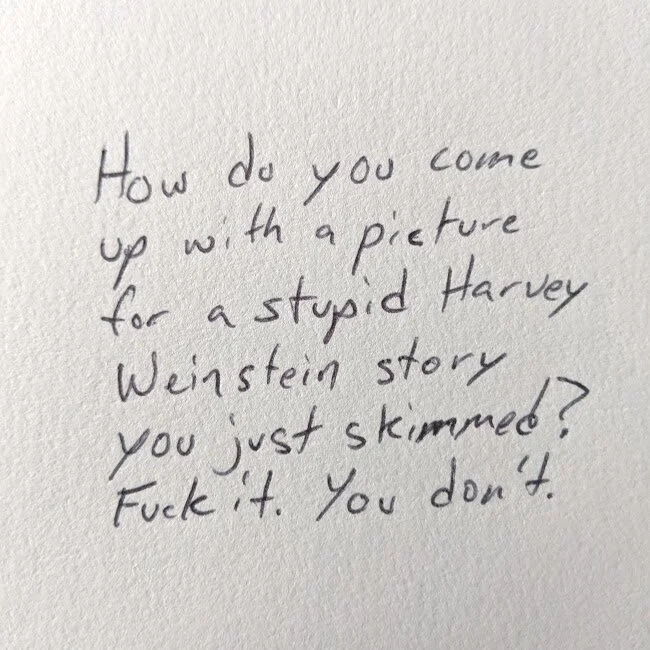 How do you come
up with a picture
for a stupid Harvey
Weinstein story
you just skimmed?
Fuck it. You don't.